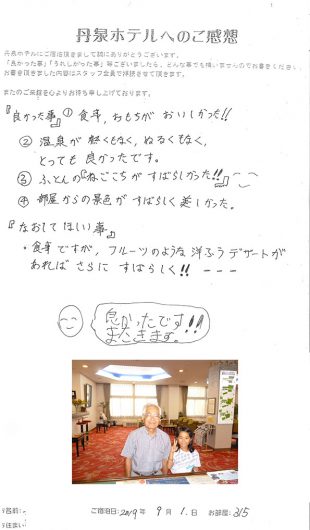 丹泉ホテルへのご感想
丹泉ホテルにご宿泊頂きまして誠にありがとうございます。
「良かった事」「うれしかった事」等ございましたら、どんな事でも構いませんのでお書きください。
お書き頂きました内容はスタッフ全員で拝読させて頂きます。
またのご来館を心よりお待ち申し上げております。
『良かった事』① 食事,おもちが おいしかった!!
② 温泉が 熱くもなく,ぬるくもなく,
とっても 良かったです。
③ ふとんの『ねごこちが すばらしかった!!』
④ 部屋からの景色が すばらしく 美しかった。
『なおしてほしい事』
・食事ですが,フルーツのような 洋ふうデザートが
あれば さらに すばらしく!! ---
良かったです!!
またきます。
お名前:
ご宿泊日:2019年 9月 1日 お部屋: 315
ご住まい